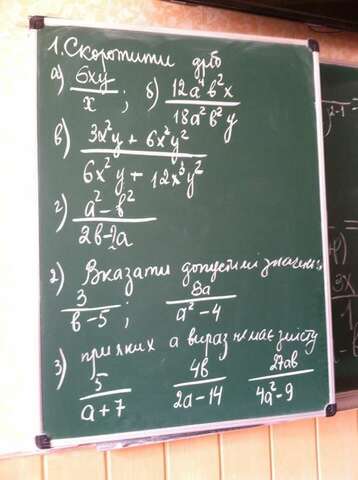 1. Скоротити дріб
а) 6xy/x ; б) 12a⁴b²x/18a²b²y
в) 3x²y + 6x²y²/6x²y + 12x³y²
г) a² - b²/2b - 2a
2) Вказати допустимі значення
3/b - 5 ; 8a/a² - 4
3) при яких а вираз не має змісту
5/a + 7 4b/2a - 14 27ab/4a² - 9